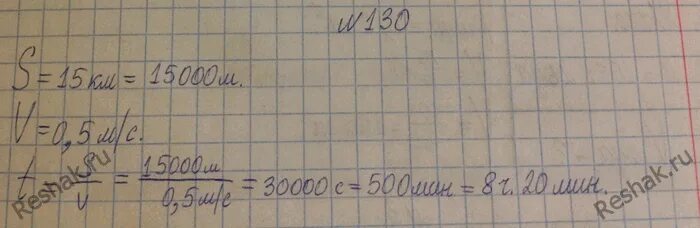 №130
S = 15 км = 15000 м.
V = 0,5 м/с.
t = S/V = 15000 м / 0,5 м/с = 30000 с = 500 мин = 8 ч. 20 мин.
Reshak.ru
Reshak.ru